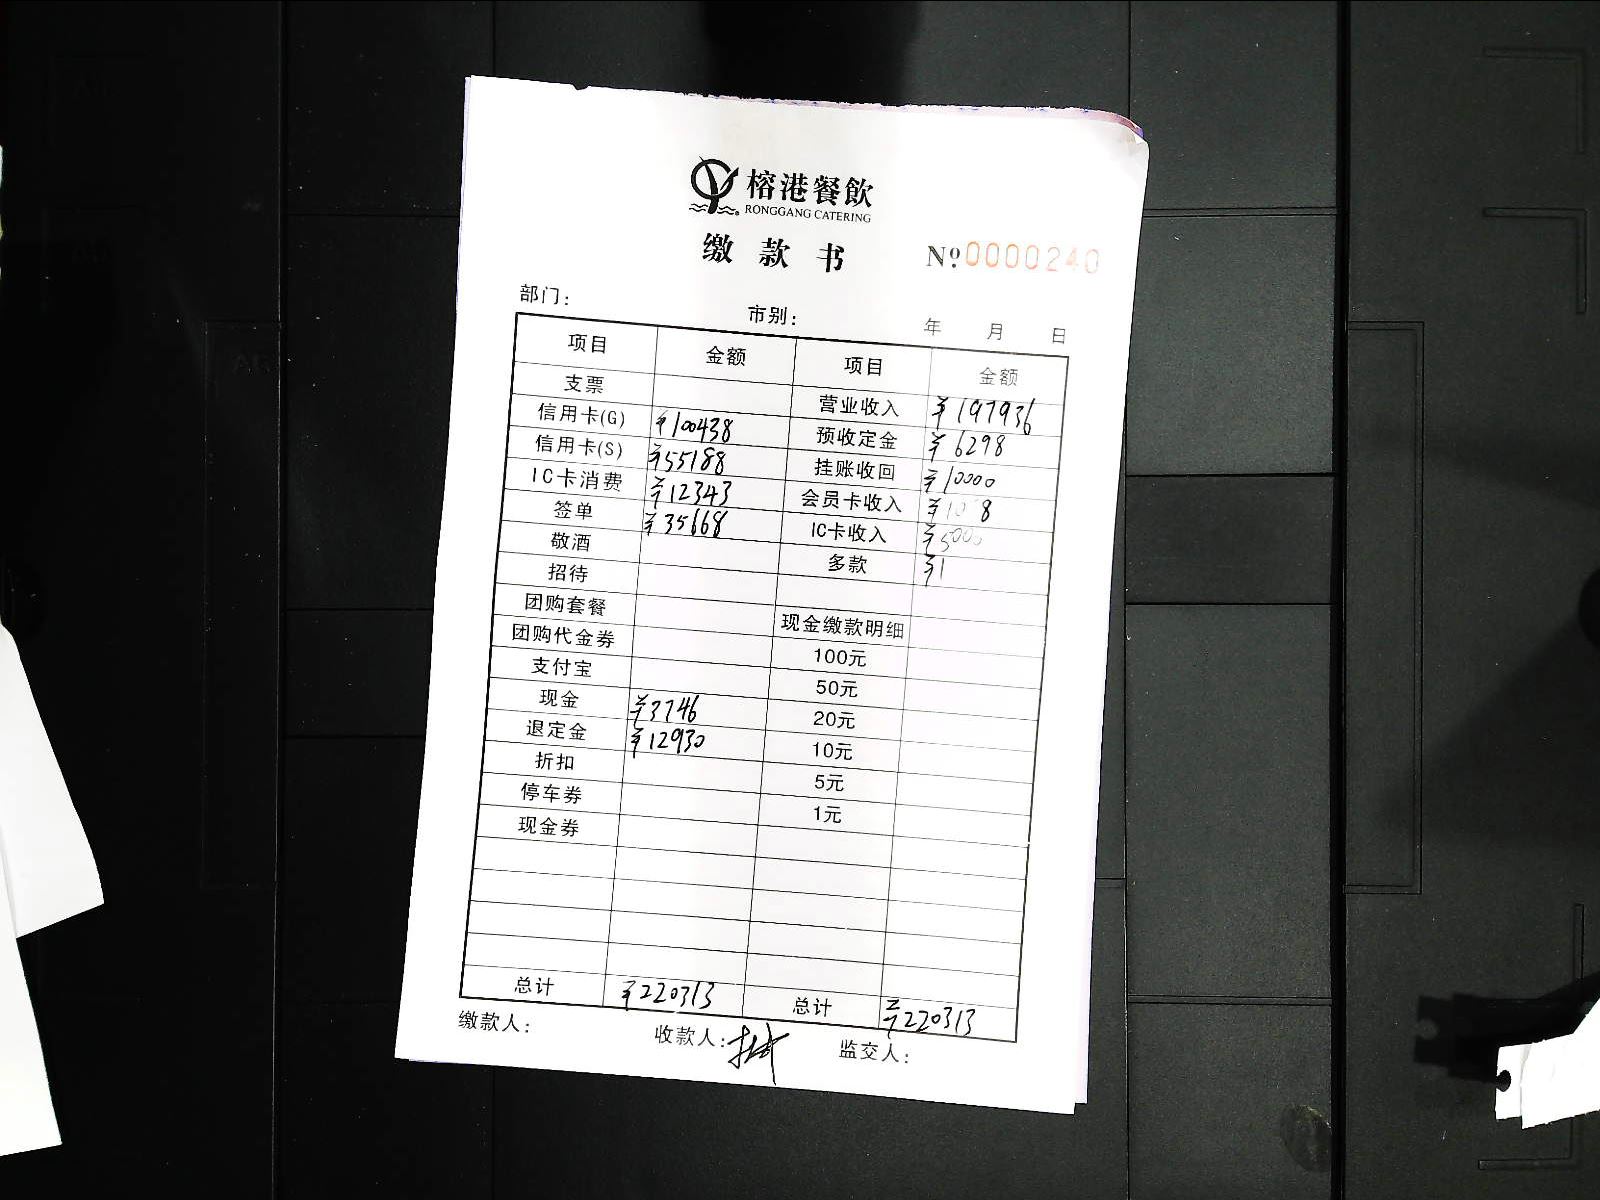 榕港餐飲
RONGGANG CATERING
缴款书 Nº0000240
部门： 市别： 年 月 日
项目 金额 项目 金额
支票 营业收入 ¥197936
信用卡(G) ¥100438 预收定金 ¥6298
信用卡(S) ¥55188 挂账收回 ¥10000
IC卡消费 ¥12343 会员卡收入
签单 ¥35668 IC卡收入 ¥5000
敬酒 多款 ¥1
招待
团购套餐 现金缴款明细
团购代金券 100元
支付宝 50元
现金 ¥3746 20元
退定金 ¥12930 10元
折扣 5元
停车券 1元
现金券
总计 ¥220313 总计 ¥220313
缴款人： 收款人： 监交人：